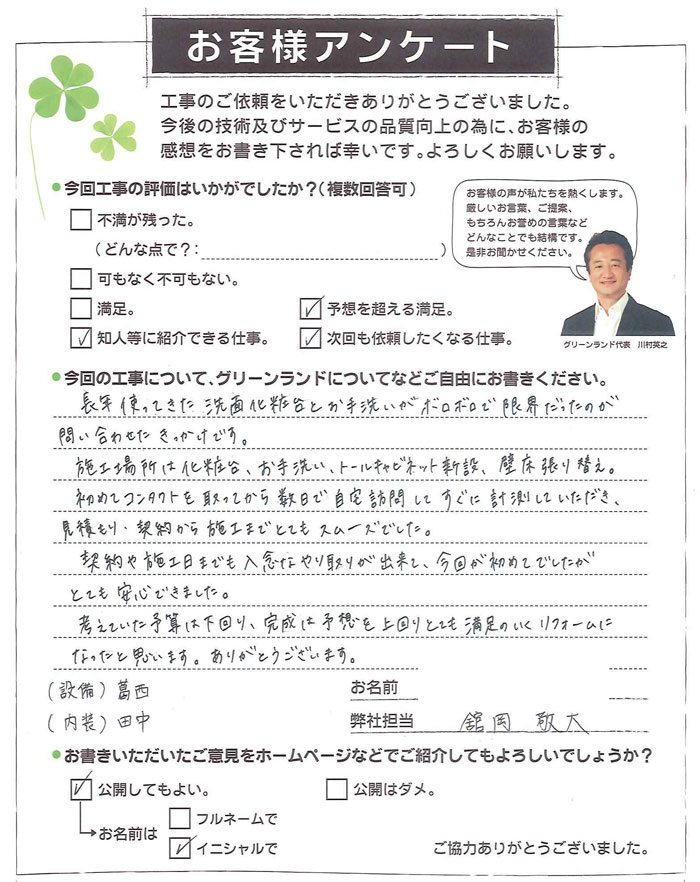 お客様アンケート
工事のご依頼をいただきありがとうございました。
今後の技術及びサービスの品質向上の為に、お客様の
感想をお書き下されば幸いです。よろしくお願いします。
●今回工事の評価はいかがでしたか？（複数回答可）
お客様の声が私たちを熱くします。
厳しいお言葉、ご提案、
もちろんお誉めの言葉など
どんなことでも結構です。
是非お聞かせください。
不満が残った。
（どんな点で？：　）
可もなく不可もない。
満足。
予想を超える満足。
知人等に紹介できる仕事。
次回も依頼したくなる仕事。
グリーンランド代表　川村英之
●今回の工事について、グリーンランドについてなどご自由にお書きください。
長年使ってきた洗面化粧台とお手洗いがボロボロで限界だったのが
問い合わせたきっかけです。
施工場所は化粧台、お手洗い、トールキャビネット新設、壁床張り替え。
初めてコンタクトを取ってから数日で自宅訪問してすぐに計測していただき、
見積もり、契約から施工までとてもスムーズでした。
契約や施工日までも入念なやり取りが出来て、今回が初めてでしたが
とても安心できました。
考えていた予算は下回り、完成は予想を上回りとても満足のいくリフォームに
なったと思います。ありがとうございます。
（設備）葛西
お名前
（内装）田中
弊社担当　舘岡 敬大
●お書きいただいたご意見をホームページなどでご紹介してもよろしいでしょうか？
公開してもよい。
公開はダメ。
お名前は
フルネームで
イニシャルで
ご協力ありがとうございました。